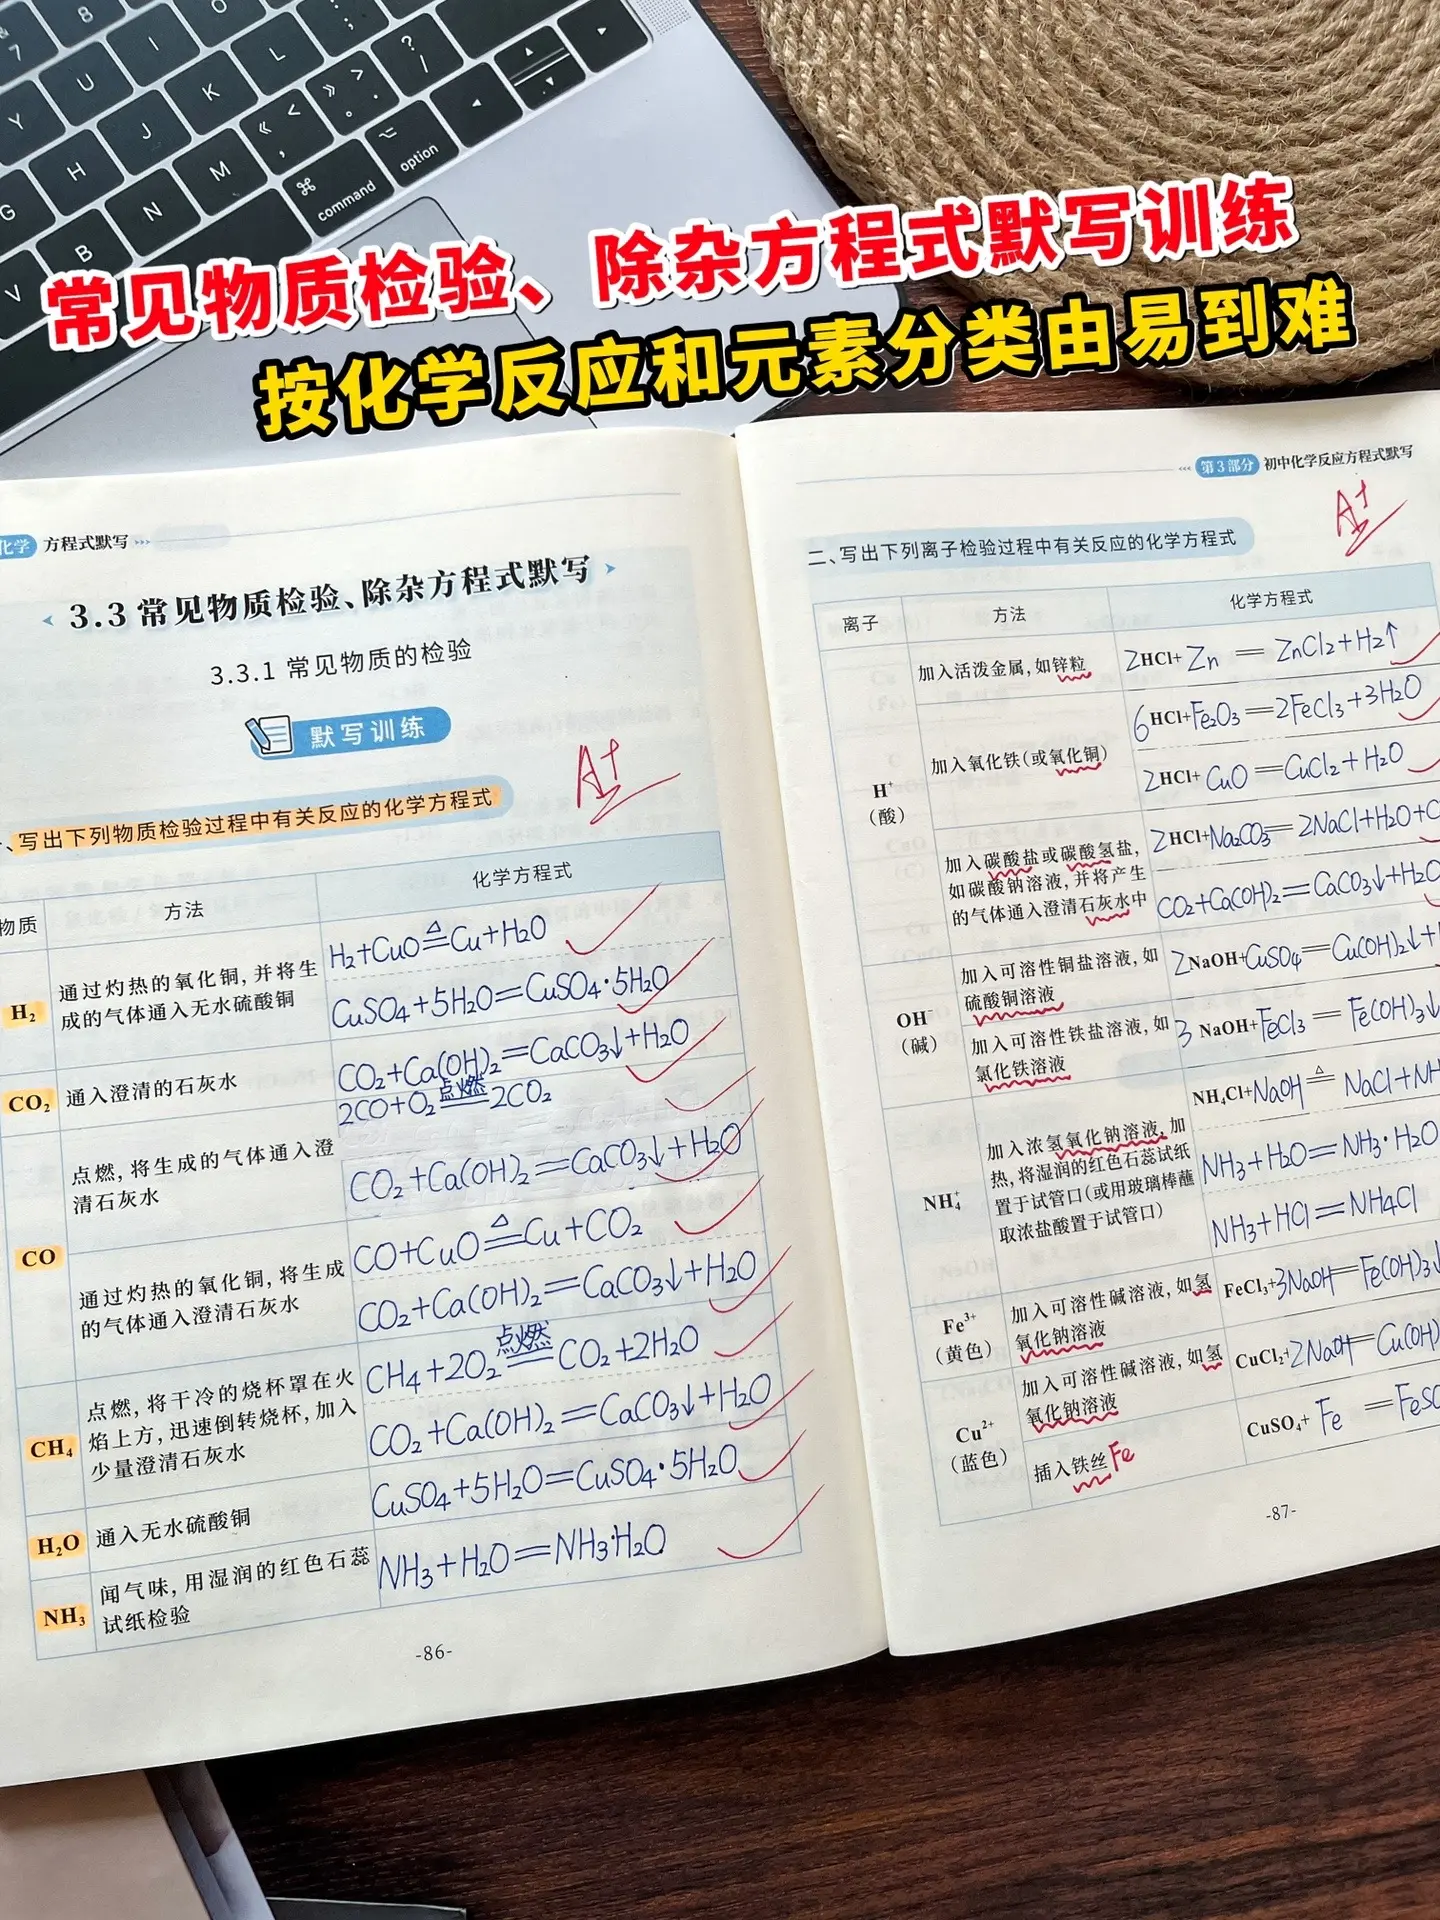 8
7
U
I
O
L
;
:
?
/
Y
H
J
K
<
,
>
.
G
B
N
M
V
⌘
command
⌥
option
常见物质检验、除杂方程式默写训练
按化学反应和元素分类由易到难
化学 方程式默写 >>>
3.3 常见物质检验、除杂方程式默写
3.3.1 常见物质的检验
默写训练
A+
、写出下列物质检验过程中有关反应的化学方程式
物质
方法
化学方程式
H₂
通过灼热的氧化铜,并将生
成的气体通入无水硫酸铜
H₂+CuO≜Cu+H₂O
CuSO₄+5H₂O=CuSO₄·5H₂O
CO₂
通入澄清的石灰水
CO₂+Ca(OH)₂=CaCO₃↓+H₂O
CO
点燃,将生成的气体通入澄
清石灰水
点燃
2CO+O₂=2CO₂
CO₂+Ca(OH)₂=CaCO₃↓+H₂O
通过灼热的氧化铜,将生成
的气体通入澄清石灰水
CO+CuO≜Cu+CO₂
CO₂+Ca(OH)₂=CaCO₃↓+H₂O
CH₄
点燃,将干冷的烧杯罩在火
焰上方,迅速倒转烧杯,加入
少量澄清石灰水
点燃
CH₄+2O₂=CO₂+2H₂O
CO₂+Ca(OH)₂=CaCO₃↓+H₂O
H₂O
通入无水硫酸铜
CuSO₄+5H₂O=CuSO₄·5H₂O
NH₃
闻气味,用湿润的红色石蕊
试纸检验
NH₃+H₂O=NH₃·H₂O
-86-
<<< 第3部分 初中化学反应方程式默写
A+
二、写出下列离子检验过程中有关反应的化学方程式
离子
方法
化学方程式
H⁺
(酸)
加入活泼金属,如锌粒
2HCl+Zn=ZnCl₂+H₂↑
加入氧化铁(或氧化铜)
6HCl+Fe₂O₃=2FeCl₃+3H₂O
2HCl+CuO=CuCl₂+H₂O
加入碳酸盐或碳酸氢盐,
如碳酸钠溶液,并将产生
的气体通入澄清石灰水中
2HCl+Na₂CO₃=2NaCl+H₂O+C
CO₂+Ca(OH)₂=CaCO₃↓+H₂O
OH⁻
(碱)
加入可溶性铜盐溶液,如
硫酸铜溶液
2NaOH+CuSO₄=Cu(OH)₂↓+
加入可溶性铁盐溶液,如
氯化铁溶液
3NaOH+FeCl₃=Fe(OH)₃↓
NH₄⁺
加入浓氢氧化钠溶液,加
热,将湿润的红色石蕊试纸
置于试管口(或用玻璃棒蘸
取浓盐酸置于试管口)
NH₄Cl+NaOH≜NaCl+NH
NH₃+H₂O=NH₃·H₂O
NH₃+HCl=NH₄Cl
Fe³⁺
(黄色)
加入可溶性碱溶液,如氢
氧化钠溶液
FeCl₃+3NaOH=Fe(OH)₃↓
Cu²⁺
(蓝色)
加入可溶性碱溶液,如氢
氧化钠溶液
CuCl₂+2NaOH=Cu(OH)
插入铁丝Fe
CuSO₄+Fe=FeSO
-87-